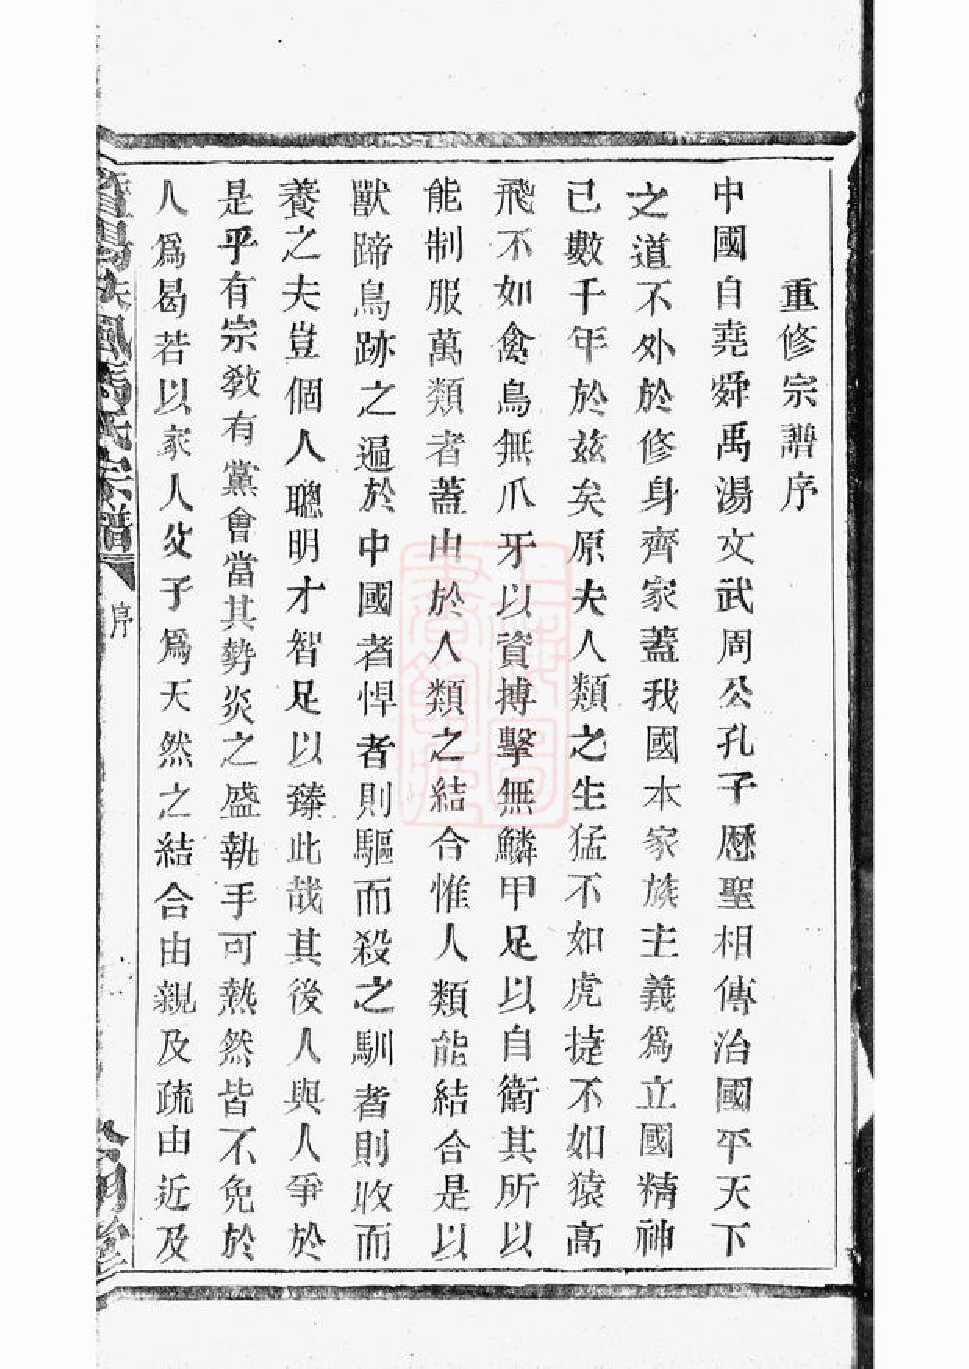 重修宗譜序
中國自堯舜禹湯文武周公孔子歷聖相傳治國平天下
之道不外於修身齊家蓋我國本家族主義爲立國精神
已數千年於茲矣原夫人類之生猛不如虎捷不如猿高
飛不如禽鳥無爪牙以資搏擊無鱗甲足以自衛其所以
能制服萬類者蓋由於人類之結合惟人類能結合是以
獸蹄鳥跡之逼於中國者悍者則驅而殺之馴者則收而
養之夫豈個人聰明才智足以臻此哉其後人與人爭於
是乎有宗教有黨會當其勢炎之盛執手可熱然皆不免於
人爲曷若以家人父子爲天然之結合由親及疏由近及
扶風馬氏宗譜
序